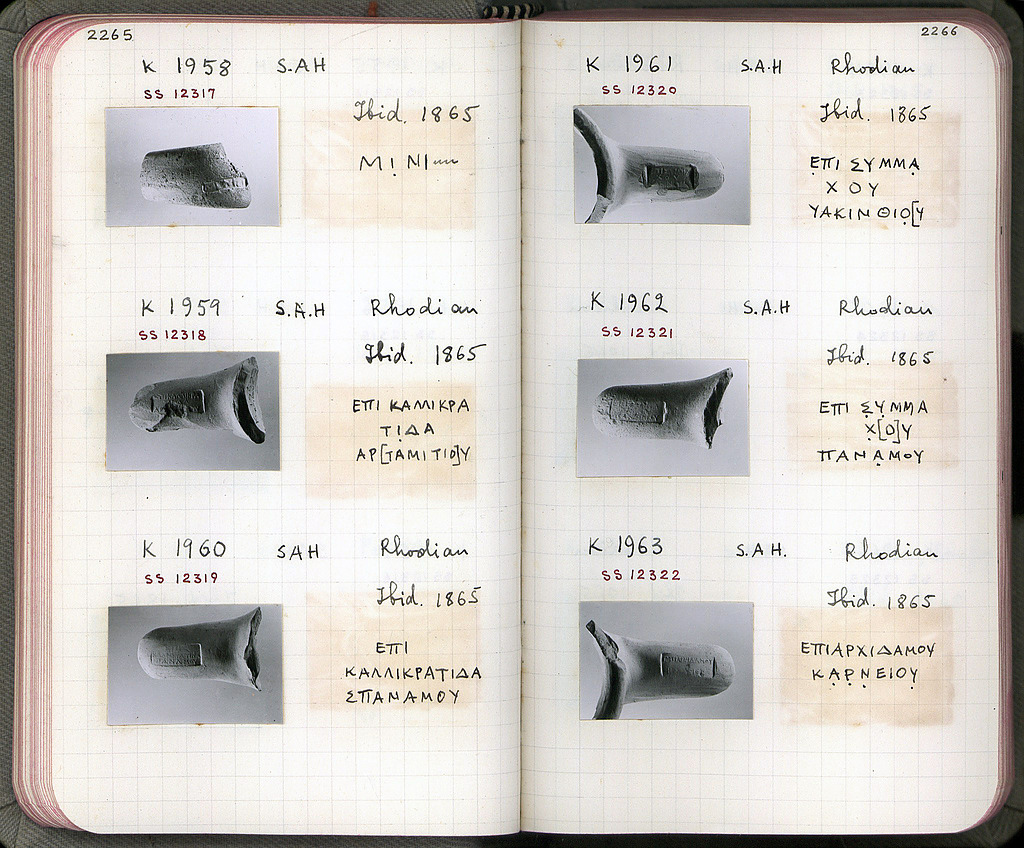 2265
K 1958 S.A.H
SS 12317
Ibid. 1865
ΜỊΝΙ
K 1959 S.A.H Rhodian
SS 12318
Ibid. 1865
ΕΠΙ ΚΑΛΛΙΚΡΑ
ΤΙΔΑ
ΑΡ[ΤΑΜΙΤΙΟ]Υ
K 1960 SAH Rhodian
SS 12319
Ibid. 1865
ΕΠΙ
ΚΑΛΛΙΚΡΑΤΙΔΑ
ΣΠΑΝΑΜΟΥ
2266
K 1961 S.A.H Rhodian
SS 12320
Ibid. 1865
Ε̣ΠΙ Σ̣ΥΜΜΑ̣
ΧΟΥ
ΥΑΚΙΝΘΙΟ̣[Υ
K 1962 S.A.H Rhodian
SS 12321
Ibid. 1865
ΕΠΙ Σ̣Υ̣ΜΜΑ
Χ̣[Ο]Υ
ΠΑΝΑ̣ΜΟΥ
K 1963 S.A.H. Rhodian
SS 12322
Ibid. 1865
ΕΠΙΑΡΧΙΔΑΜΟΥ
ΚΑ̣Ρ̣ΝΕΙΟΥ̣